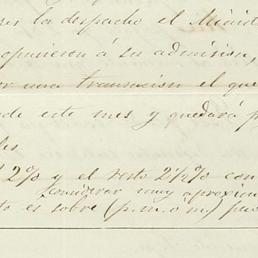 la despacho el Minis
opusieron á su admision,
una transacion el que
de este mes y quedará p
les.
2% y el resto 2½% con
considerar muy aproxim
to es sobre (p.m.o m) pero